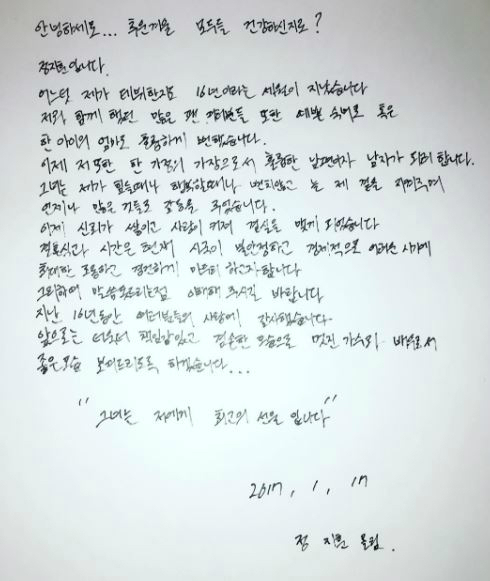 안녕하세요... 추운겨울 모두들 건강하신지요?
정지훈입니다.
어느덧 제가 데뷔한지도 16년이라는 세월이 지났습니다
저와 함께 했던 많은 팬 여러분들 또한 예쁜 숙녀로 혹은
한 아이의 엄마로 훌륭하게 변했습니다.
이제 저또한 한 가정의 가장으로서 훌륭한 남편이자 남자가 되려 합니다.
그녀는 제가 힘들때나 행복할때나 변치않고 늘 제 곁을 지켜주며
언제나 많은 것들로 감동을 주었습니다.
이제 신뢰가 쌓이고 사랑이 커져 결실을 맺게 되었습니다
결혼식과 시간은 현재 시국이 불안정하고 경제적으로 어려운 시기에
최대한 조용하고 경건하게 마무리 하고자 합니다
그리하여 말씀못드리는점 이해해 주시길 바랍니다
지난 16년동안 여러분들의 사랑에 감사했습니다.
앞으로는 더욱더 책임감있고 겸손한 모습으로 멋진 가수와 배우로서
좋은모습 보여드리도록 하겠습니다...
"그녀는 저에게 최고의 선물 입니다"
2017. 1. 17
정 지훈 올림.